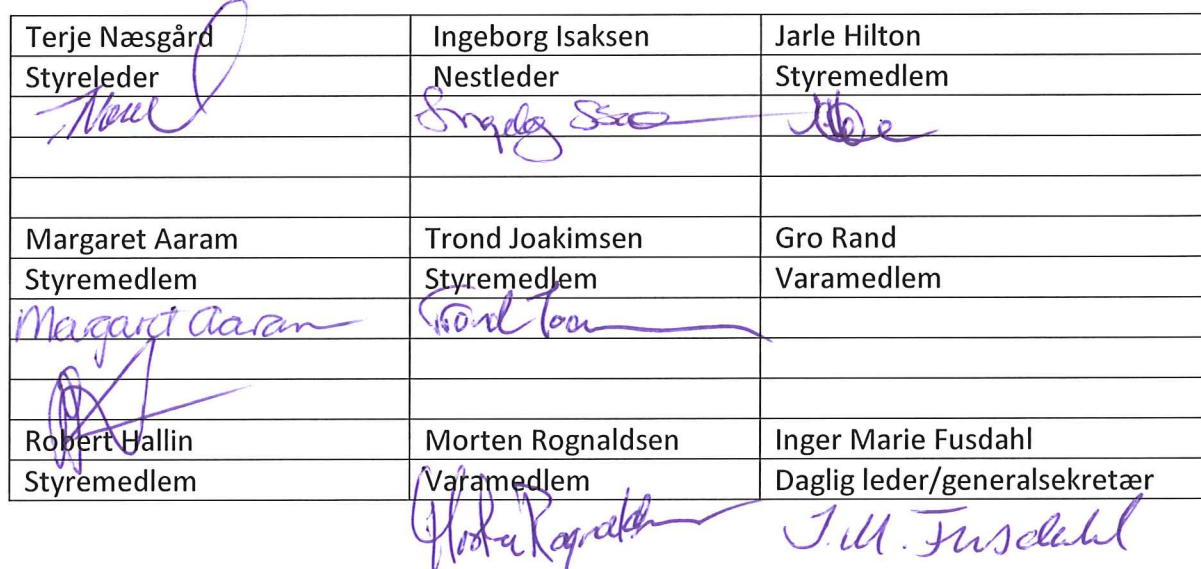 Terje Næsgård Ingeborg Isaksen Jarle Hilton
Styreleder Nestleder Styremedlem
Margaret Aaram Trond Joakimsen Gro Rand
Styremedlem Styremedlem Varamedlem
Margaret Aaram Trond
Robert Hallin Morten Rognaldsen Inger Marie Fusdahl
Styremedlem Varamedlem Daglig leder/generalsekretær
I.M. Fusdahl